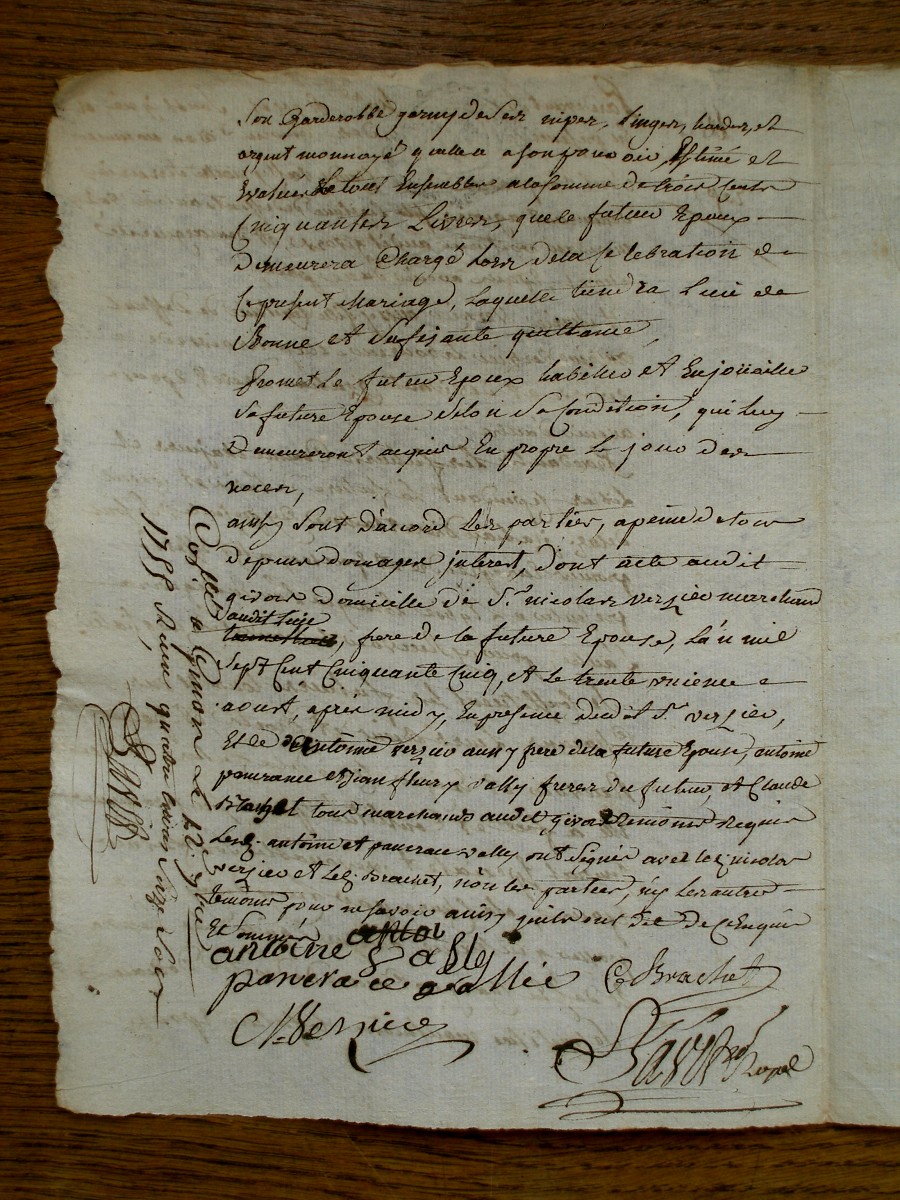 Son Garderobbe garny de Ses nipes, linges, hardes, et
argent monnayé quelle a a son pouvoir, Estimé et
Evalué Le tout Ensembles a la Somme de trois cents
Cinquantes Livres, que le futeur Epoux
Demeurera Chargé Lors de la Celebration de
Ce present Mariage, Laquelle tiendra Lieu de
Bonne et Sufisante quittance,
Promet Le futeur Epoux habiller et Enjoüailler
Sa future Epouse Selon Sa Condition, qui luy
Demeureront acquis En propre Le jour des
noces,
ainsy Sont D'acord Les parties, a peine de tous
Depens Domages interest, D'ont acte audit
givors Domicille de Sr. nicolas versieu marchand
audit lieu
, frere de la future Epouse, L'an mil
Sept Cent Cinquante Cinq, et Le trente unieme
aoust, après midy, En presence dudit Sr. versieu,
Et de Antoinne versieu aussy frere de la future Epouse, antoine
pancrance et jean fleury vally freres du futeur, et Claude
Brachet tous marchands audit givors temoins Requis
Lesd. antoine et pancrace vally ont Signés avec led. nicolas
versieu et Led. Brachet, non les parties, ny Les autres
temoins pour ne Savoir ainsy quils ont dit de ce Enquis
Et Sommés
antoine vally
pancrace vallie
C Brachet
N. Versieu
Royal
Conllé a Givors Le 12. 7bre
1755 Reçu quatre Livres Seize Sols